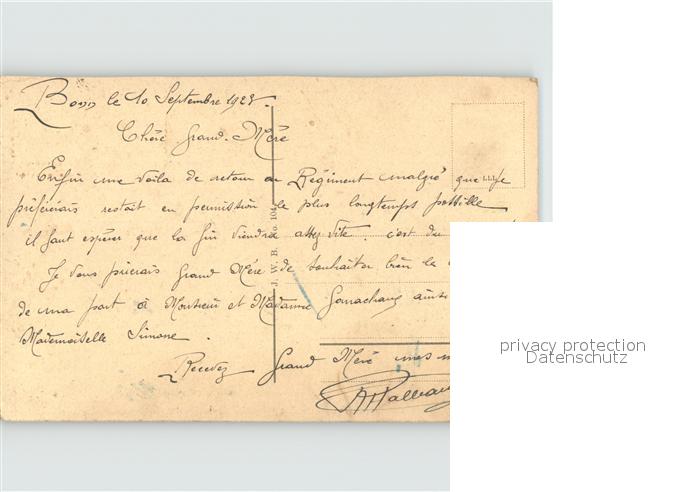 Bonn le 10 Septembre 1925.
Chère Grand-Mère
Enfin me voila de retour au Régiment malgré que je
préférerais restait en permission le plus longtemps possible
il faut espérer que la fin viendra assez vite. c'est du
Je vous prierais Grand Mère de souhaiter bien le
de ma part à Monsieur et Madame ainsi
Mademoiselle Simone.
Recevez Grand Mère mes
J. W. B. No. 104
privacy protection
Datenschutz